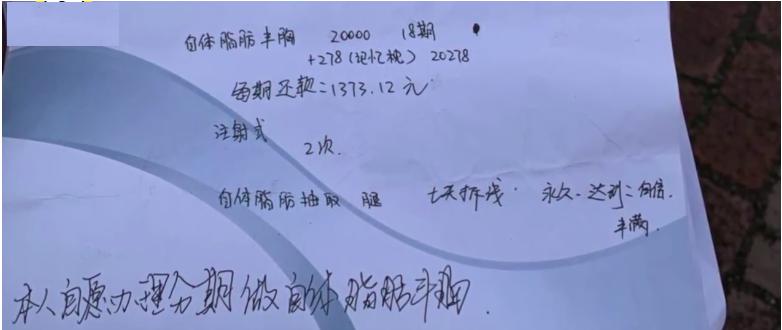 自体脂肪丰胸 20000 18期
+278(记忆枕) 20278
每期还款:1373.12元
注射式
2次.
自体脂肪抽取 腿 七天拆线. 永久. 达到:自信.
丰满.
本人自愿办理分期做自体脂肪丰胸.